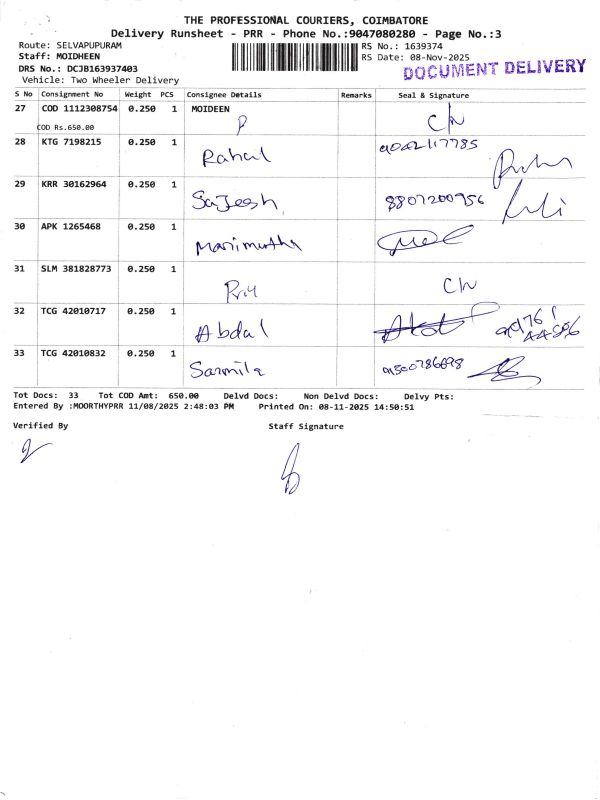 THE PROFESSIONAL COURIERS, COIMBATORE
Delivery Runsheet - PRR - Phone No.:9047080280 - Page No.:3
Route: SELVAPUPURAM
RS No.: 1639374
Staff: MOIDHEEN
RS Date: 08-Nov-2025
DRS No.: DCJB163937403
DOCUMENT DELIVERY
Vehicle: Two Wheeler Delivery
S No Consignment No Weight PCS Consignee Details Remarks Seal & Signature
27 COD 1112308754 0.250 1 MOIDEEN
COD Rs.650.00
28 KTG 7198215 0.250 1
Rahul
29 KRR 30162964 0.250 1
Sajeesh 8807200956
30 APK 1265468 0.250 1
Marimuthu
31 SLM 381828773 0.250 1
32 TCG 42010717 0.250 1
Abdal
33 TCG 42010832 0.250 1
Sarmila
Tot Docs: 33 Tot COD Amt: 650.00 Delvd Docs: Non Delvd Docs: Delvy Pts:
Entered By :MOORTHYPRR 11/08/2025 2:48:03 PM Printed On: 08-11-2025 14:50:51
Verified By Staff Signature